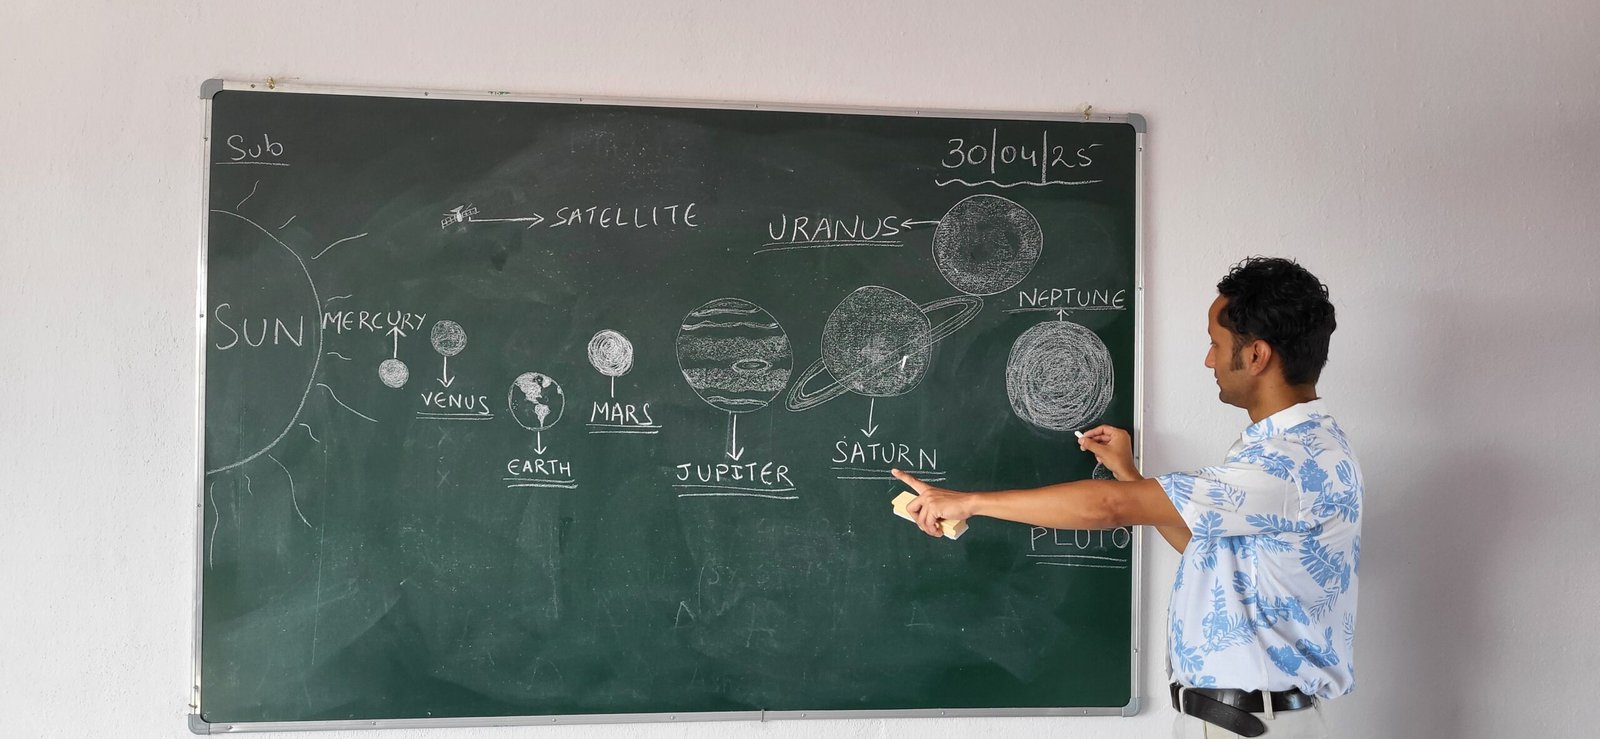 Sub
30|04|25
SATELLITE
URANUS
NEPTUNE
SUN
MERCURY
VENUS
MARS
EARTH
JUPITER
SATURN
PLUTO